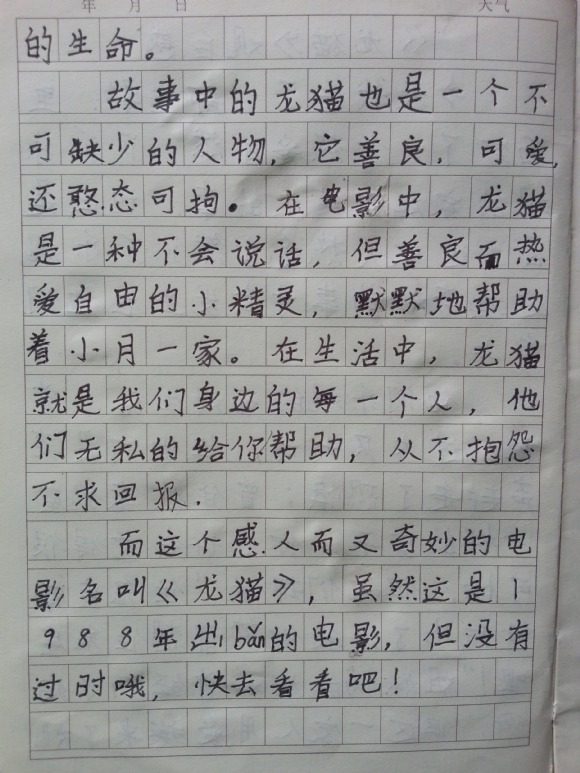 年 月 日 天气
的生命。
故事中的龙猫也是一个不
可缺少的人物，它善良，可爱，
还憨态可拘。在电影中，龙猫
是一种不会说话，但善良而热
爱自由的小精灵，默默地帮助
着小月一家。在生活中，龙猫
就是我们身边的每一个人，他
们无私的给你帮助，从不抱怨
不求回报．
而这个感人而又奇妙的电
影名叫《龙猫》，虽然这是1
988年出bǎn的电影，但没有
过时哦，快去看看吧！